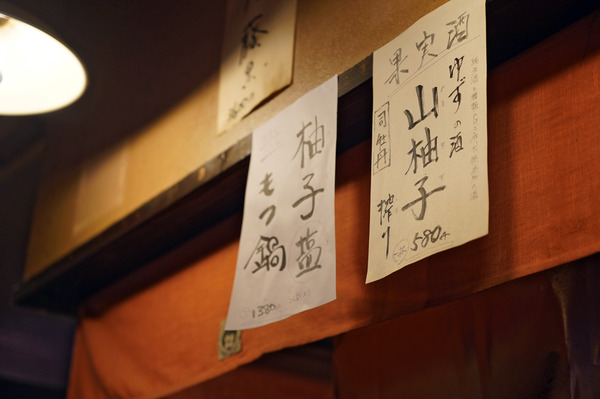 果実酒
ゆずの酒
山柚子
搾り
司牡丹
580
柚子塩
もつ鍋
1380